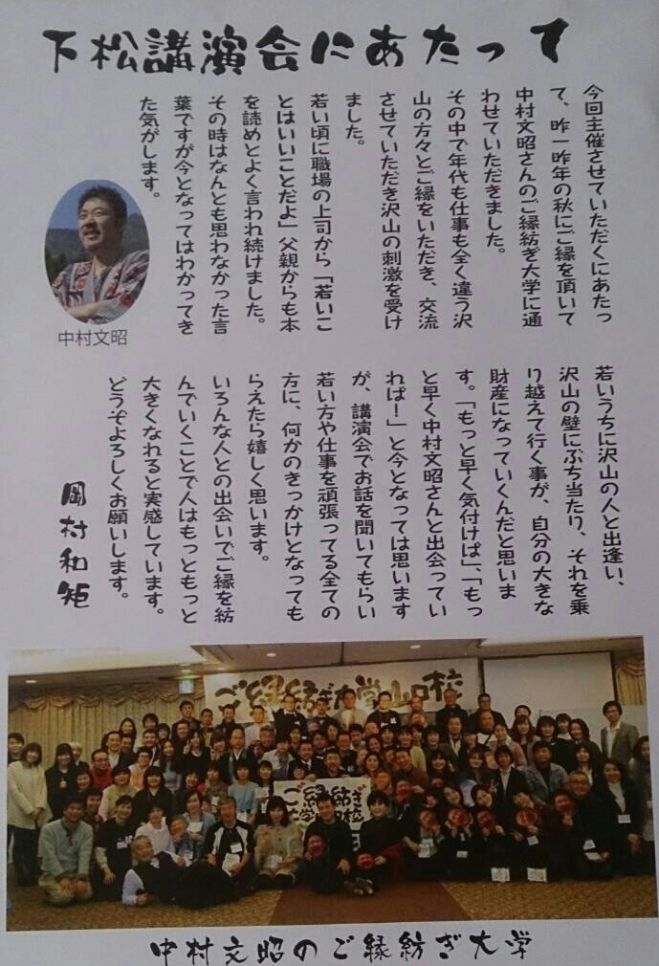 下松講演会にあたって
今回主催させていただくにあたっ
て、昨一昨年の秋にご縁を頂いて
中村文昭さんのご縁紡ぎ大学に通
わせていただきました。
その中で年代も仕事も全く違う沢
山の方々とご縁をいただき、交流
させていただき沢山の刺激を受け
ました。
若い頃に職場の上司から「若いこ
とはいいことだよ」父親からも本
を読めとよく言われ続けました。
その時はなんとも思わなかった言
葉ですが今となってはわかってき
た気がします。
中村文昭
若いうちに沢山の人と出逢い、
沢山の壁にぶち当たり、それを乗
り越えて行く事が、自分の大きな
財産になっていくんだと思いま
す。「もっと早く気付けば」、「もっ
と早く中村文昭さんと出会ってい
れば！」と今となっては思います
が、講演会でお話を聞いてもらい
若い方や仕事を頑張ってる全ての
方に、何かのきっかけとなっても
らえたら嬉しく思います。
いろんな人との出会いでご縁を紡
んでいくことで人はもっともっと
大きくなれると実感しています。
どうぞよろしくお願いします。
岡村和矩
ご縁紡ぎ大学山口校
ご縁紡ぎ
大学山口校
中村文昭のご縁紡ぎ大学